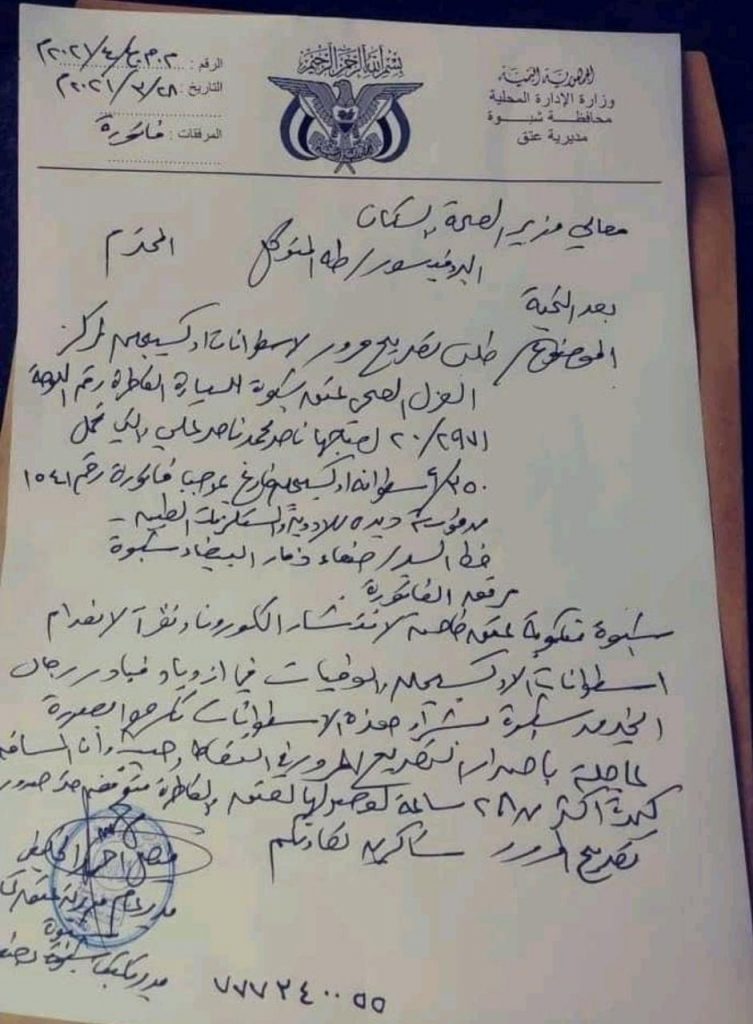 بسم الله الرحمن الرحيم
الجمهورية اليمنية
وزارة الإدارة المحلية
محافظة شبوة
مديرية عتق
الرقم :
التاريخ : ٢٠٢١/٣/٢٨م
المرفقات : فاتورة
معالي وزير الصحة والسكان
البروفيسور/ طه المتوكل المحترم
بعد التحية
الموضوع/ طلب تصريح مرور لاسطوانات اوكسيجين لمركز
العزل الصحي عتق شبوة للسيارة القاطرة رقم اللوحة
٢٠/٢٩٧١ لصاحبها ناصر محمد ناصر علي والتي تحمل
٣٥٠ اسطوانة اوكسيجين فارغ بموجب فاتورة رقم ١٥٤١
للادوية والمستلزمات الطبية -
خط السير/ صنعاء ذمار البيضاء شبوة
مرفق الفاتورة
شبوة منكوبة عتق خاصة لانتشار الكورونا ونظرا لانعدام
اسطوانات الاوكسيجين والوفيات في ازدياد فبادر رجال
الخير من شبوة بشراء هذه الاسطوانات نكرر بصورة
عاجلة باصدار التصريح المرور في النقاط وحيث وأن المسافة
اكثر من ٢٨ ساعة لوصولها لعتق والقاطرة متوقفة حتى صدور
تصريح المرور شاكرين تعاونكم
مدير عام مديرية عتق
شبوة
٧٧٧٢٤٠٠٥٥